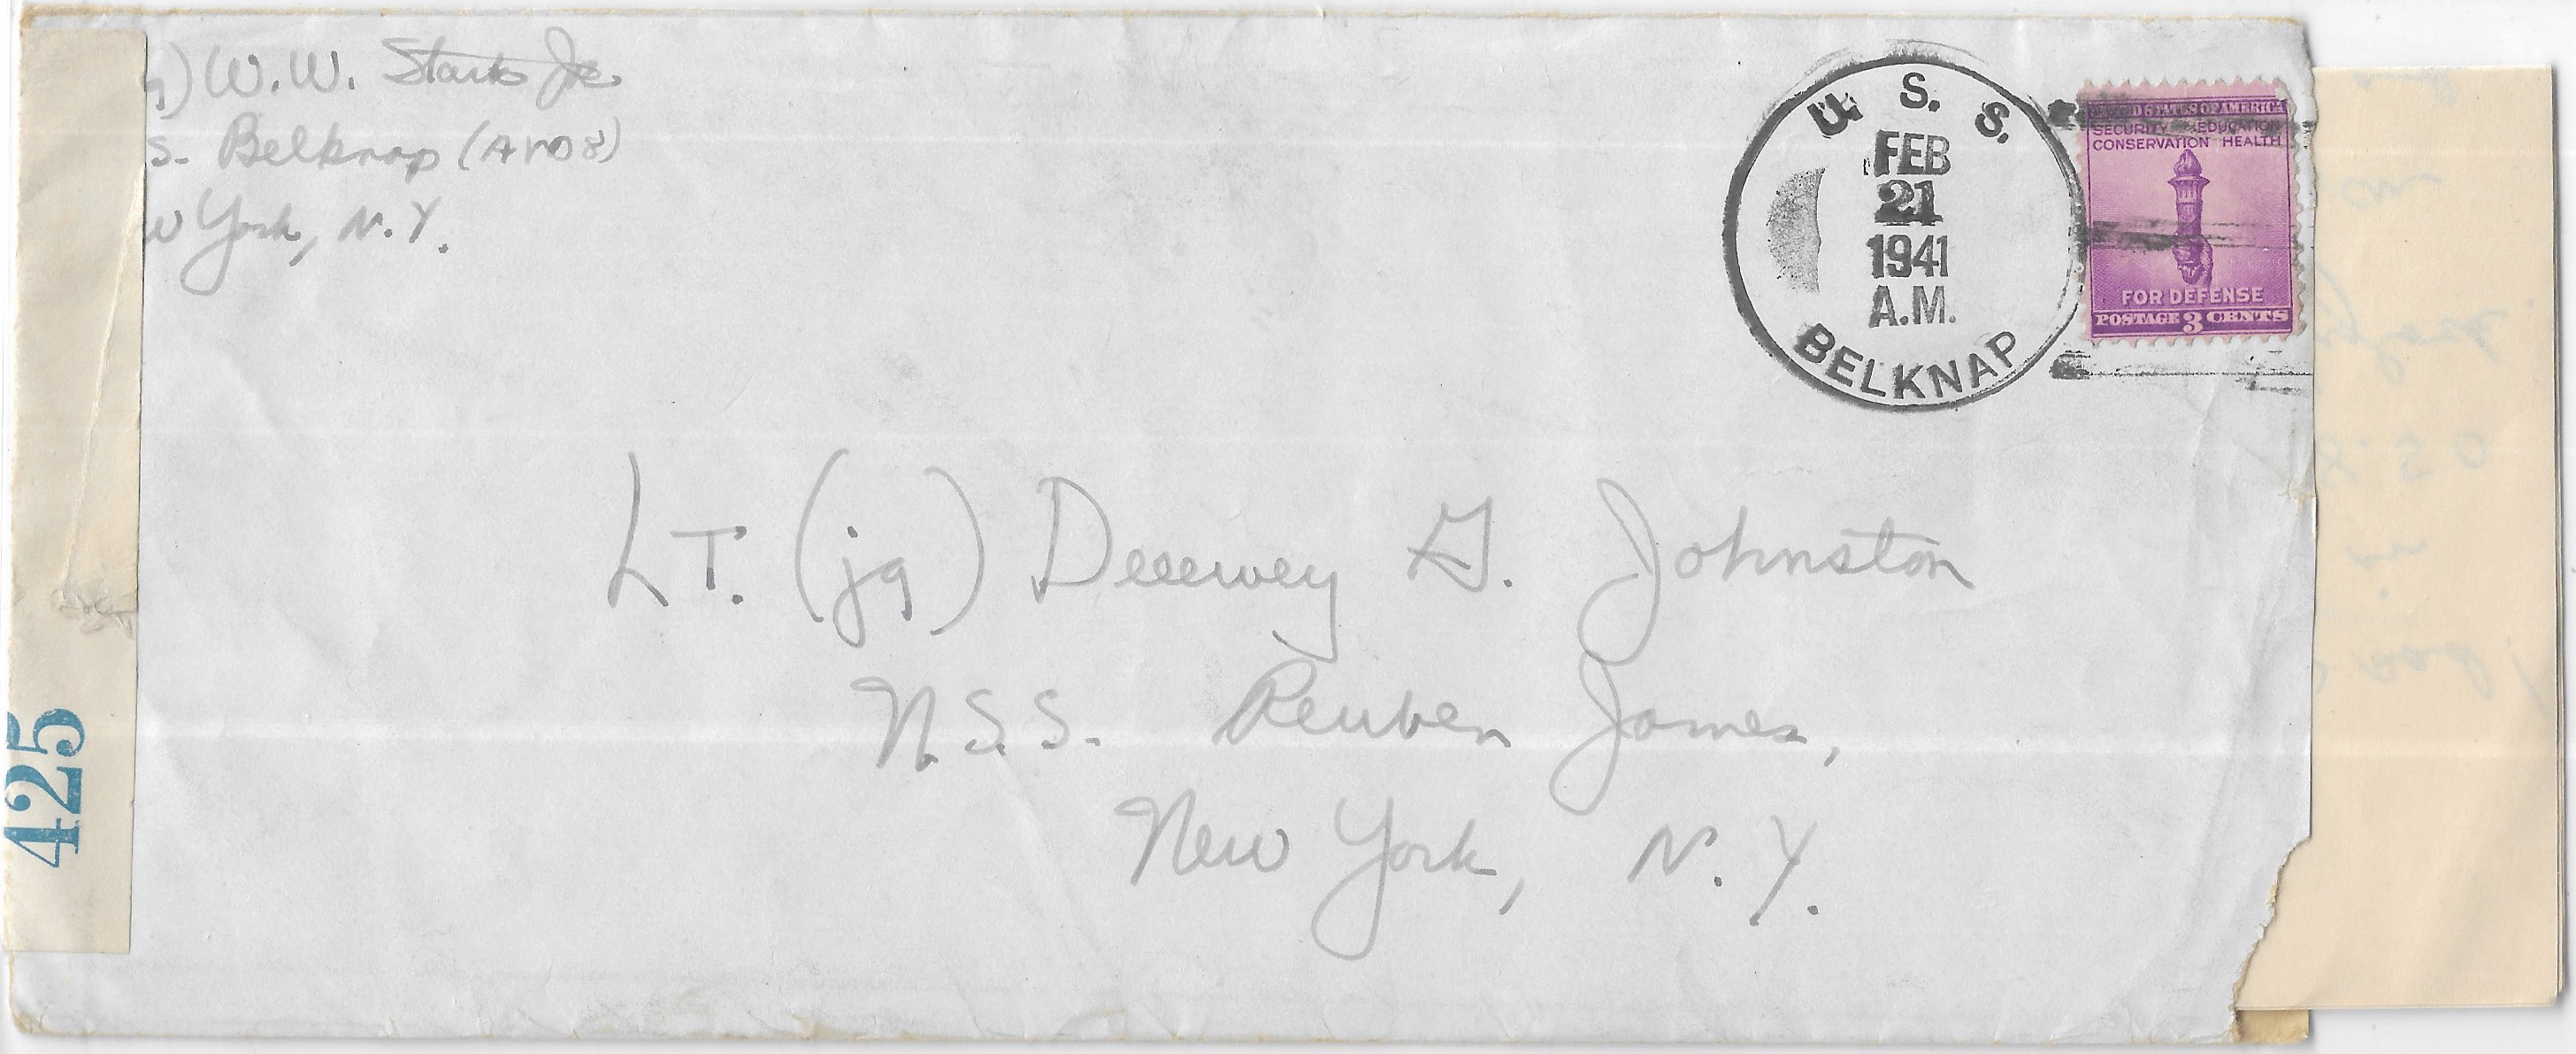 ) W.W. Starks Jr.
S. Belknap (AVD8)
w York, N.Y.
U. S. S.
FEB
21
1941
A.M.
BELKNAP
UNITED STATES OF AMERICA
SECURITY EDUCATION
CONSERVATION HEALTH
FOR DEFENSE
POSTAGE 3 CENTS
LT. (jg) Deeewey G. Johnston
U.S.S. Reuben James,
New York, N.Y.
425